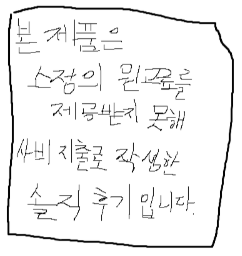 본 제품은
소정의 원고료를
제공받지 못해
사비 지출로 작성한
솔직 후기입니다.